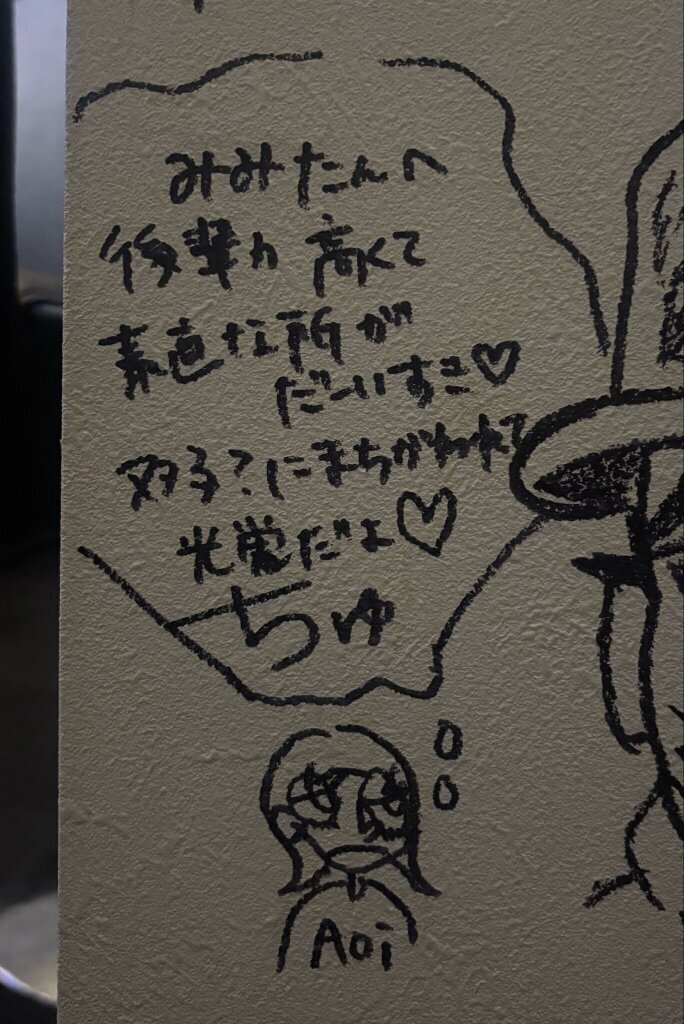 みみたんへ
後輩力高くて
素直な所が
だーいすき♡
双子?にまちがわれて
光栄だよ♡
ちゅ
Aoi